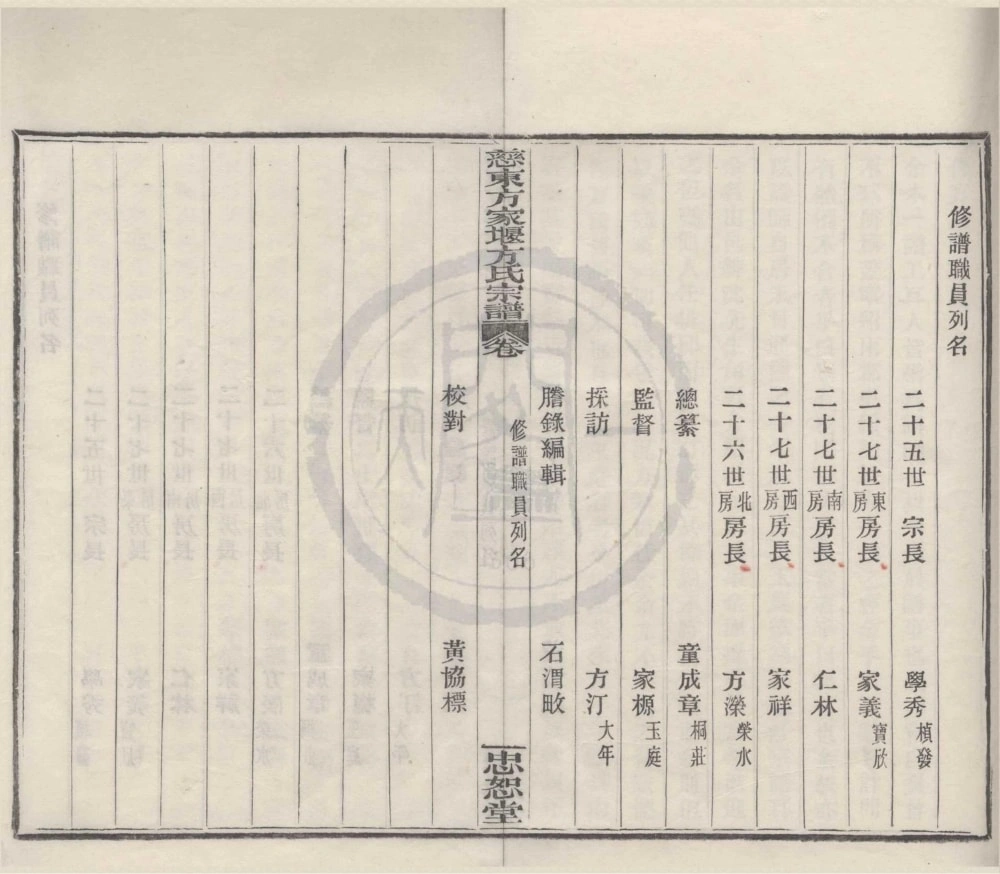 修譜職員列名
二十五世 宗長 學秀 楨發
二十七世東房房長 家義 寶欣
二十七世南房房長 仁林
二十七世西房房長 家祥
二十六世北房房長 方濚 榮水
總纂 童成章 桐莊
監督 家榞 玉庭
採訪 方汀 大年
謄錄編輯 石渭畋
修譜職員列名
慈東方家堰方氏宗譜 卷
忠恕堂
校對 黃協標